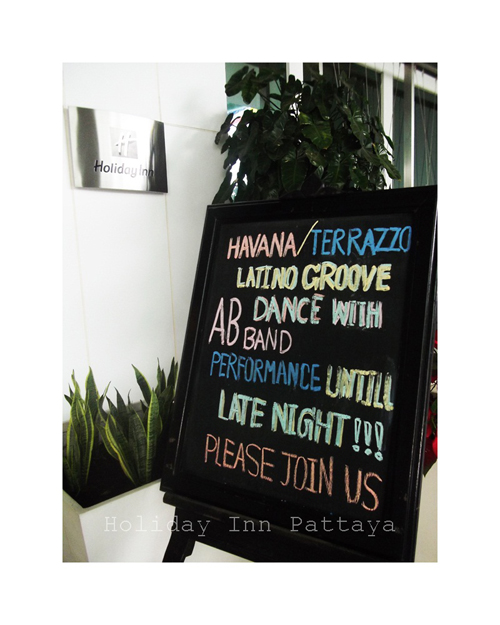 Holiday Inn
HAVANA/TERRAZZO
LATINO GROOVE
DANCE WITH
AB BAND
PERFORMANCE UNTILL
LATE NIGHT!!!
PLEASE JOIN US
Holiday Inn Pattaya